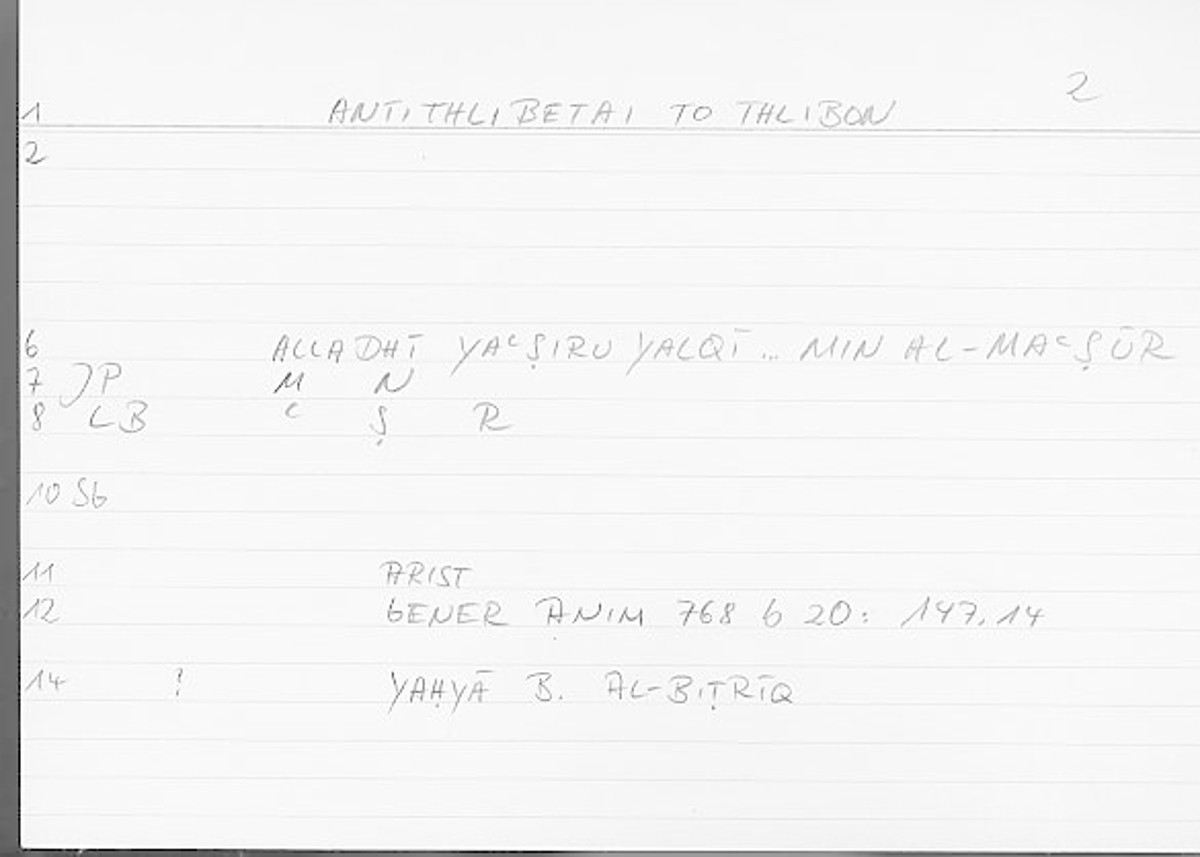 2
1 ANTITHLIBETAI TO THLIBON
2
6 ALLADHĪ YAʿṢIRU YALQĪ ... MIN AL-MAʿṢŪR
7 JP M N
8 LB ʿ Ṣ R
10 Sb
11 ARIST
12 GENER ANIM 768 b 20: 147.14
14 ? YAḤYĀ B. AL-BIṬRĪQ